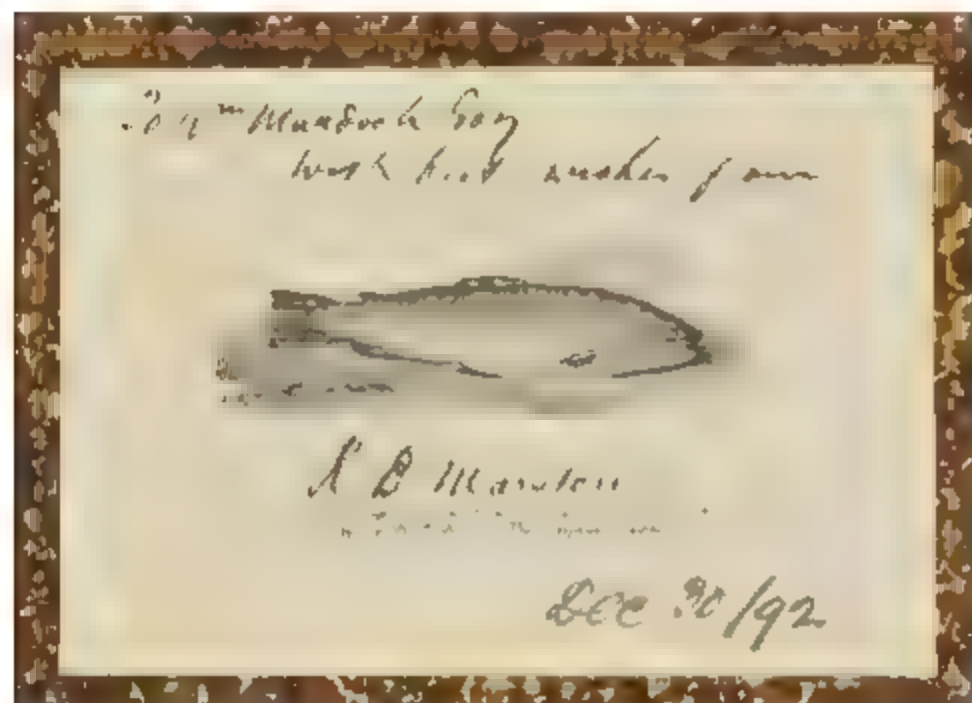 To Wm Murdoch Esq
with best wishes from
R B Marston
Dec 30/92